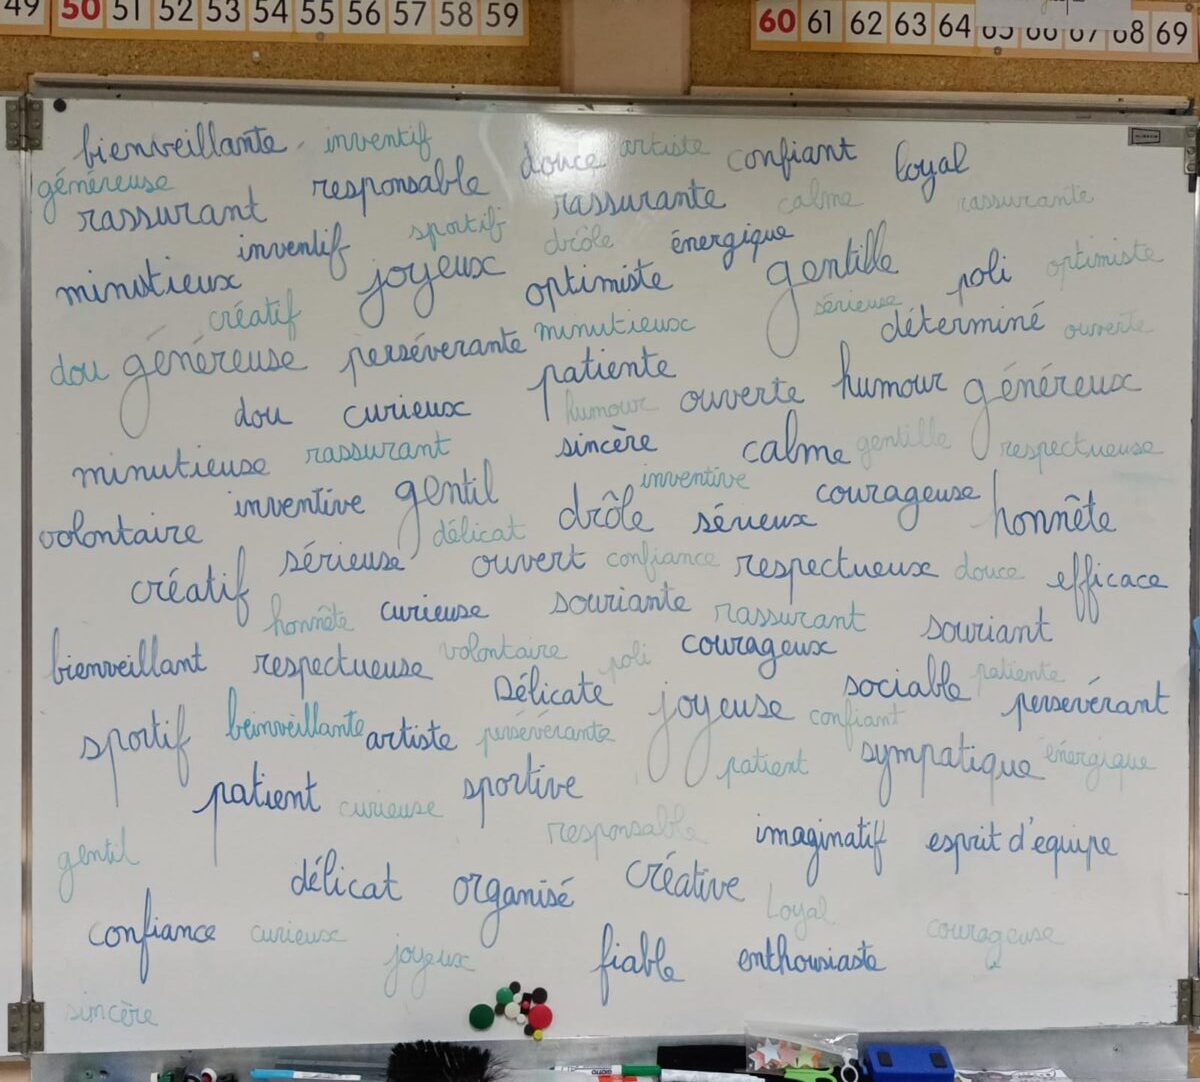 49 50 51 52 53 54 55 56 57 58 59
60 61 62 63 64 65 66 67 68 69
bienveillante inventif douce artiste confiant loyal
généreuse responsable rassurante calme rassurante
rassurant inventif sportif drôle énergique
minutieux joyeux optimiste gentille poli optimiste
créatif sérieuse déterminé ouverte
dou généreuse persévérante minutieux
patiente
dou curieux humour ouverte humour généreux
minutieuse rassurant sincère calme gentille respectueuse
inventive gentil inventive courageuse
volontaire délicat drôle sérieux honnête
créatif sérieuse ouvert confiance respectueux douce efficace
honnête curieuse souriante rassurant souriant
bienveillant respectueuse volontaire poli courageux
Délicate joyeuse sociable patiente persevérant
sportif beinveillante artiste persévérante confiant
patient sympatique énergique
patient curieuse sportive
responsable imaginatif esprit d'equipe
gentil
délicat organisé créative Loyal
confiance curieux joyeux fiable enthousiaste courageuse
sincère